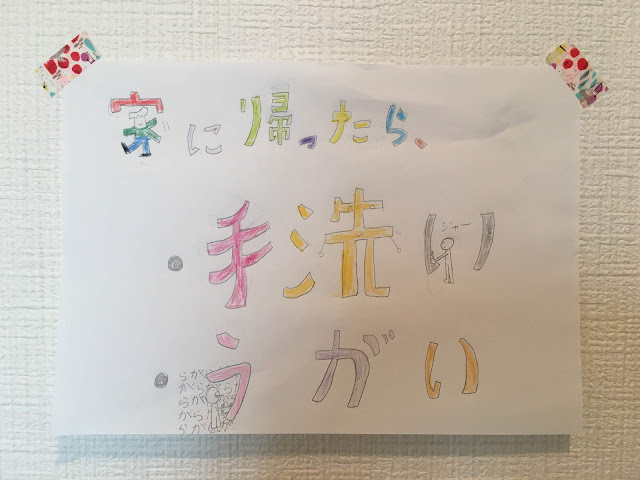 家に帰ったら、
・手洗い
ジャー
・うがい
がらがら
がらがら
がらがら